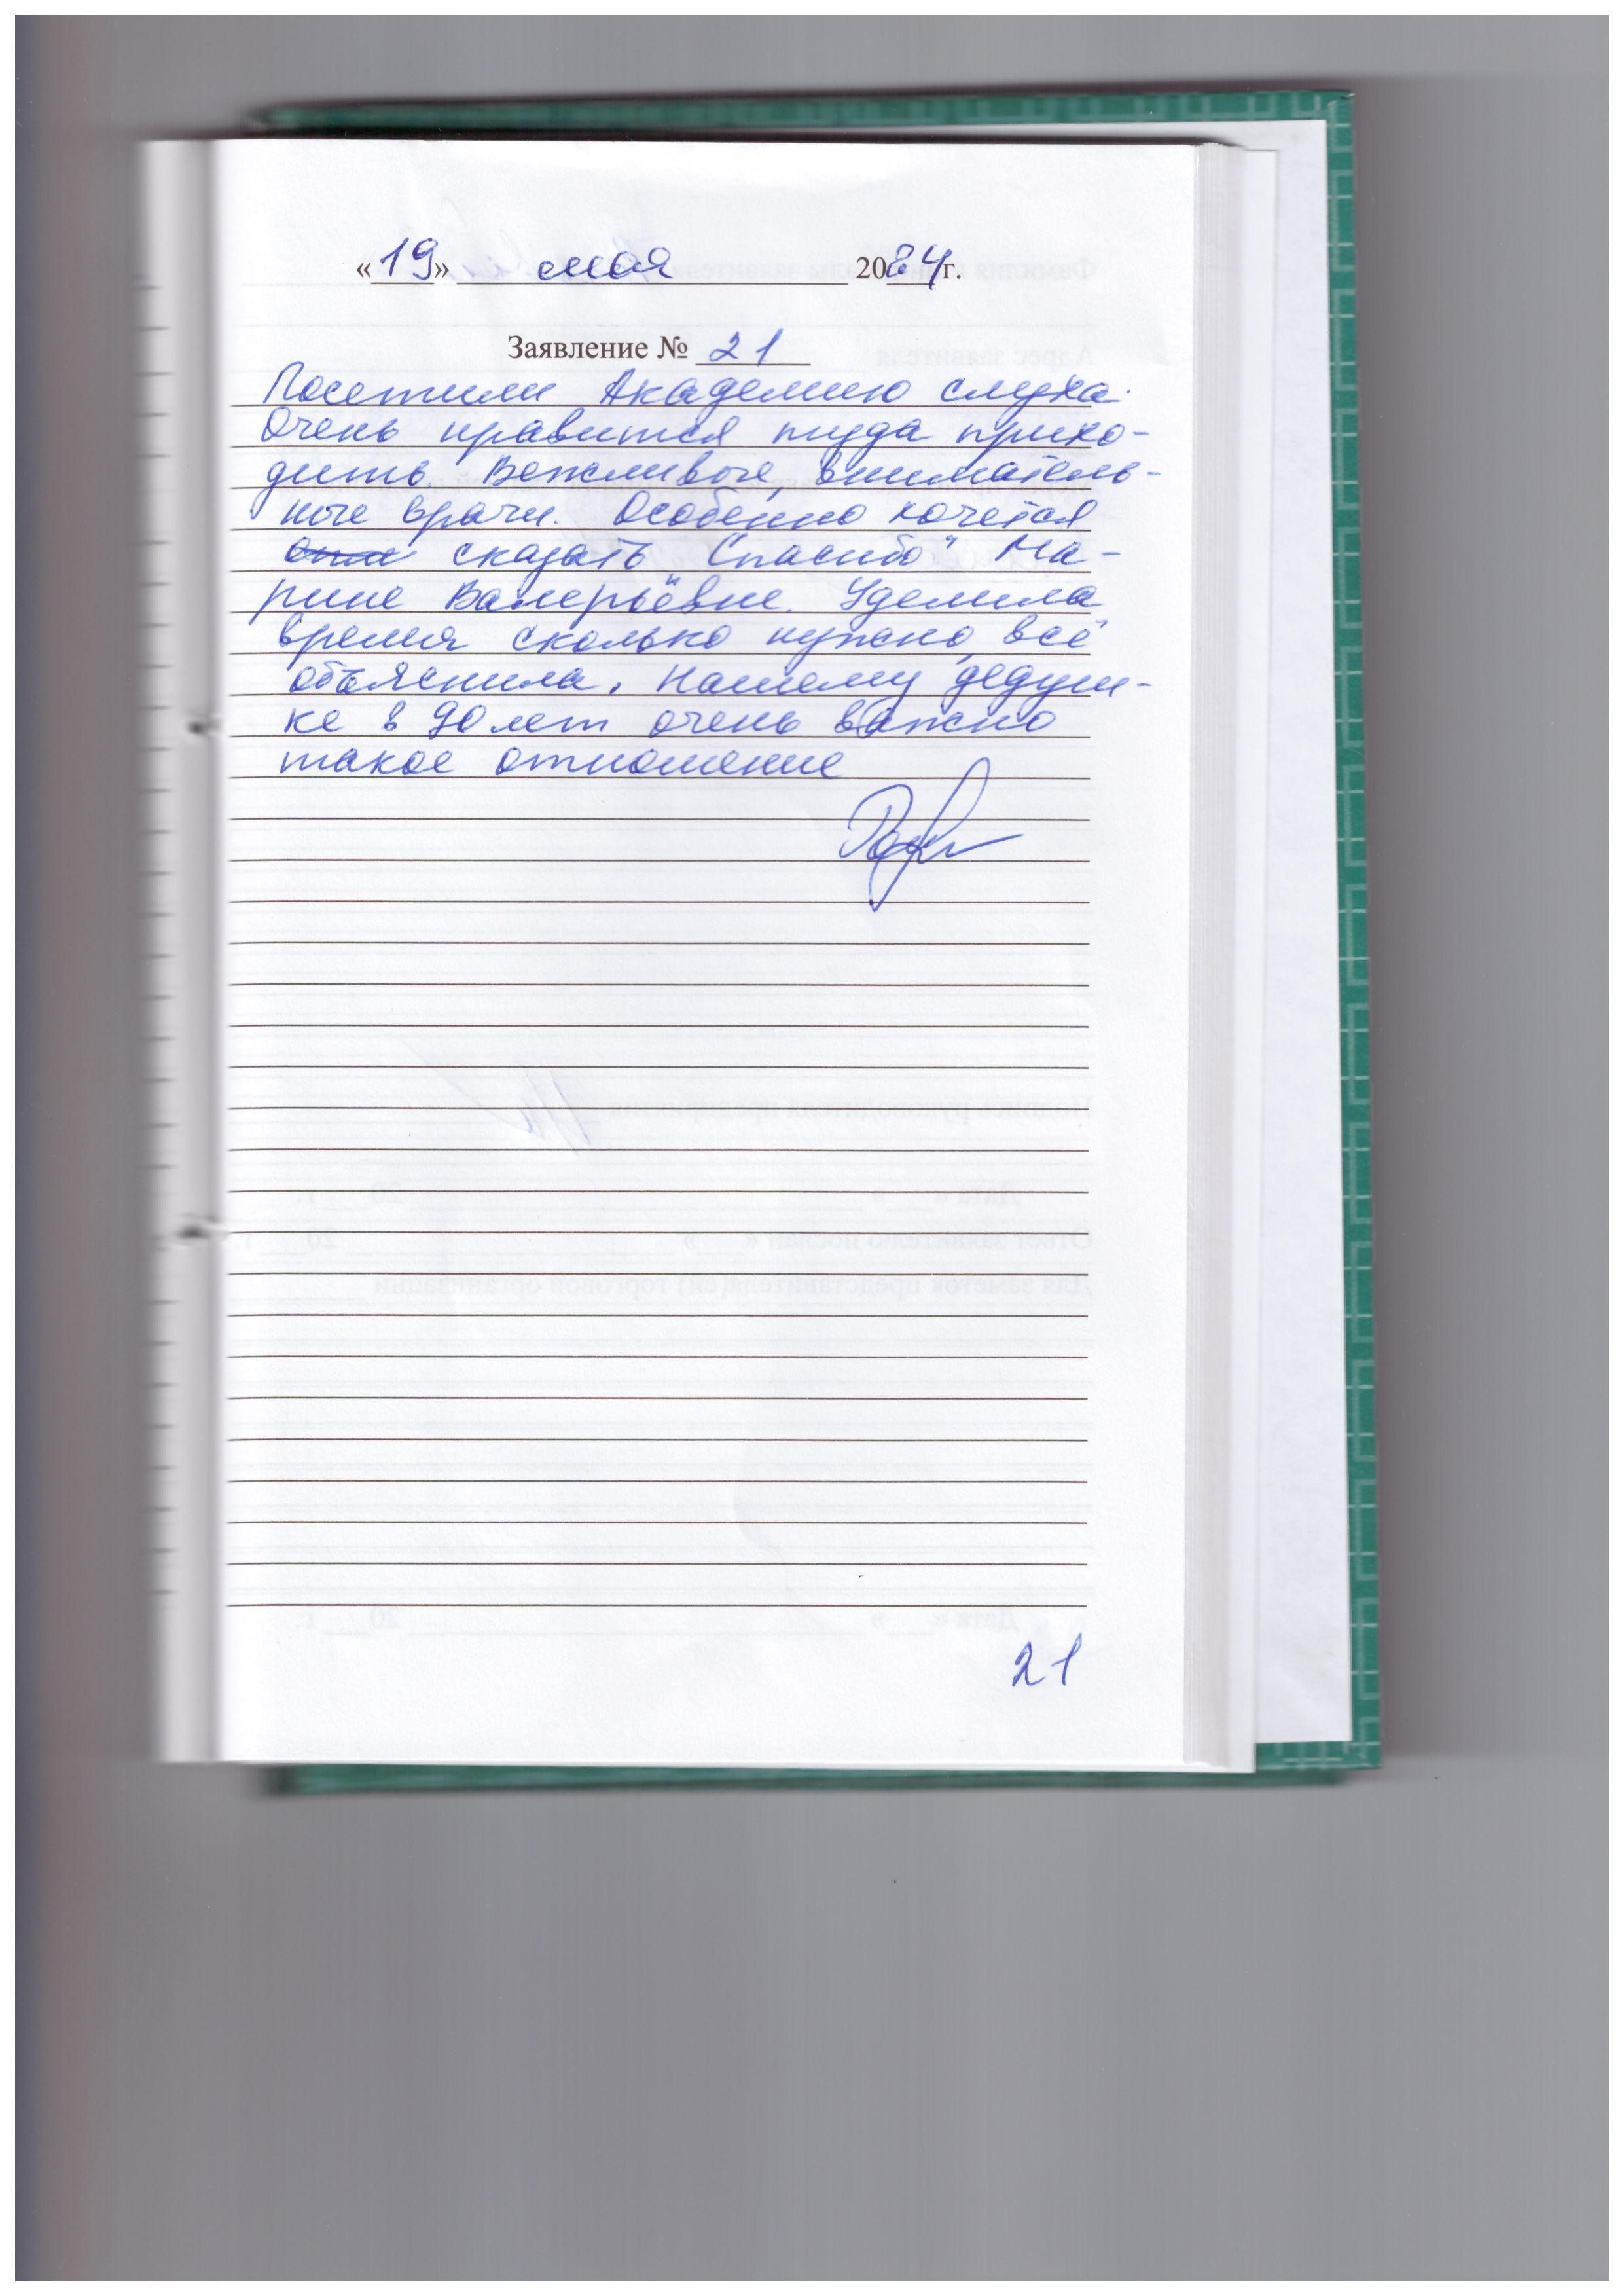 «19» мая 2024г.
Заявление № 21
Посетили Академию слуха.
Очень нравится туда прихо-
дить. Вежливые, вниматель-
ные врачи. Особенно хочется
сказать "Спасибо" Ма-
рине Валерьёвне. Уделила
время сколько нужно, всё
объяснила. Нашему дедуш-
ке в 90 лет очень важно
такое отношение
21